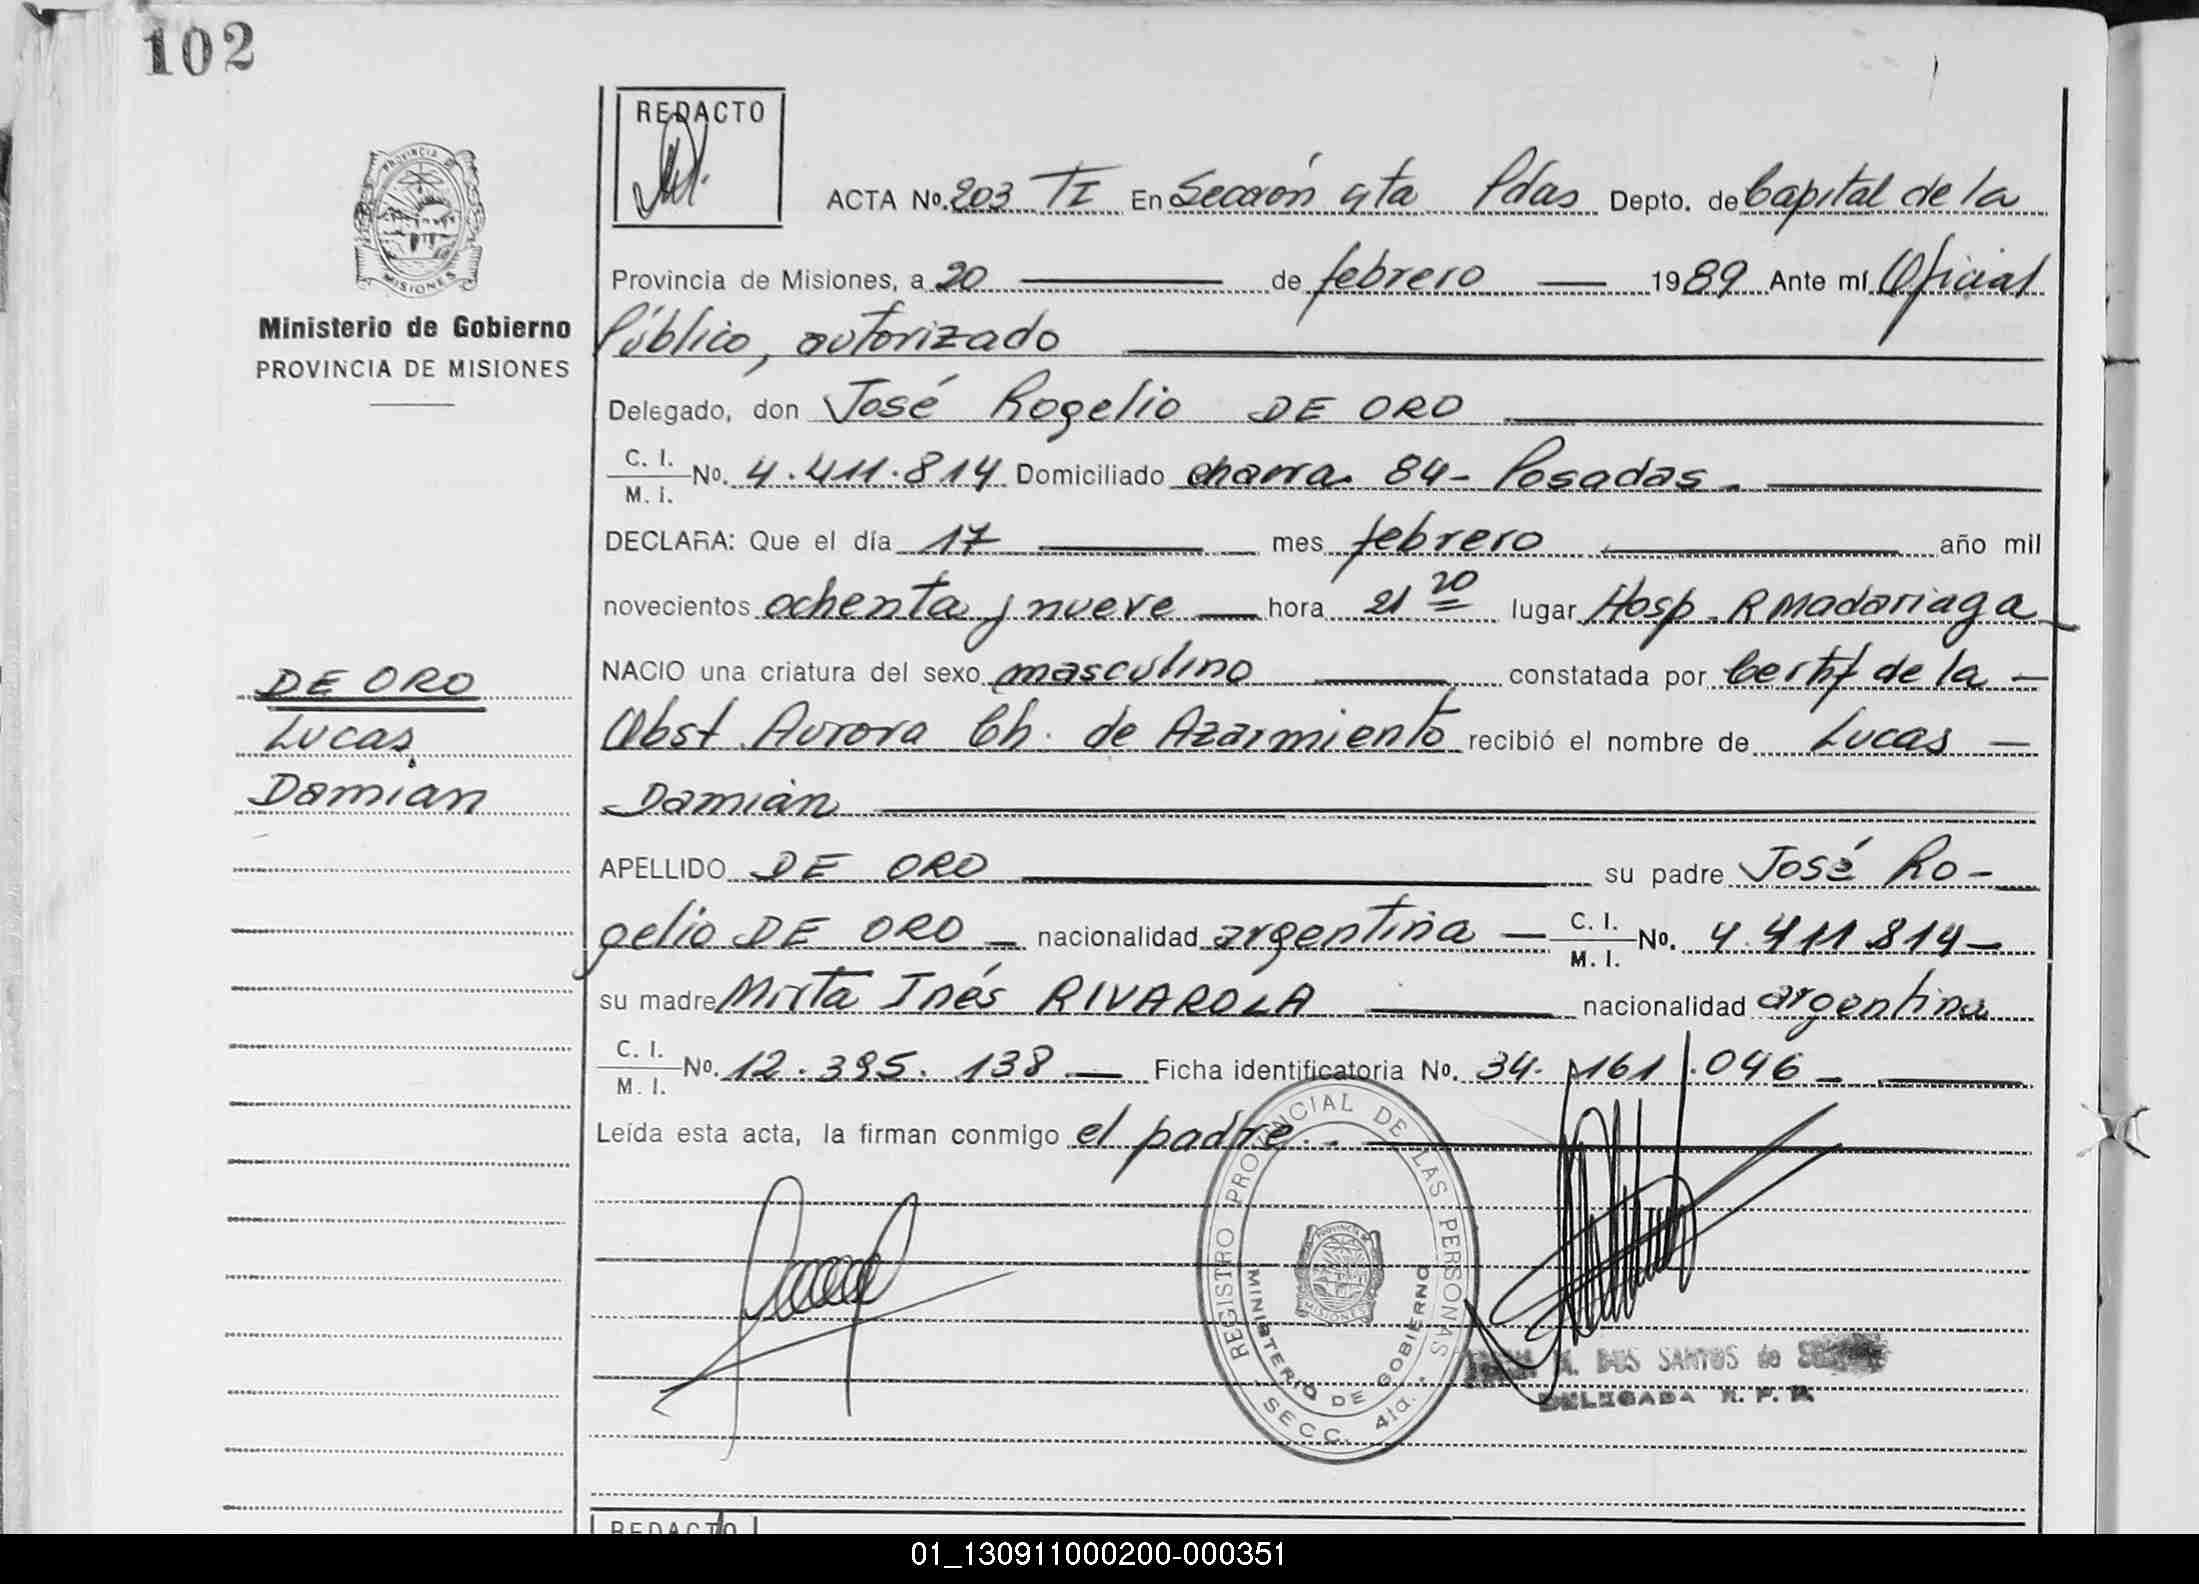 102
REDACTO
ACTA No. 203 TI En Sección 4ta Pdas Depto. de Capital de la
Provincia de Misiones, a 20 de febrero 1989 Ante mí Oficial
Público, autorizado
Ministerio de Gobierno
PROVINCIA DE MISIONES
Delegado, don José Rogelio DE ORO
C. I. / M. I. No. 4.411.814 Domiciliado charra 84 - Posadas.
DECLARA: Que el día 17 mes febrero año mil
novecientos ochenta y nueve hora 21 20 lugar Hosp. R Madariaga
NACIO una criatura del sexo masculino constatada por Certif de la
Obst. Aurora Ch. de Azarmiento recibió el nombre de Lucas
Damián
DE ORO
Lucas
Damian
APELLIDO DE ORO su padre José Ro-
gelio DE ORO nacionalidad argentina C. I. / M. I. No. 4.411.814
su madre Mirta Inés RIVAROLA nacionalidad argentina
C. I. / M. I. No. 12.395.138 Ficha identificatoria No. 34.161.046
Leída esta acta, la firman conmigo el padre.
REGISTRO PROVINCIAL DE LAS PERSONAS
MINISTERIO DE GOBIERNO
PROVINCIA DE MISIONES
SECC. 4ta.
DOS SANTOS de
DELEGADA R. P. P.
REDACTO
01_130911000200-000351